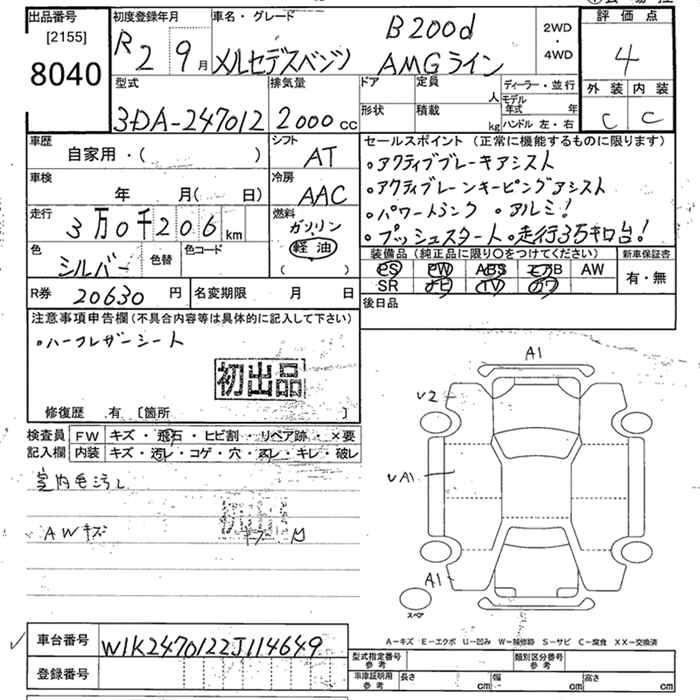 出品番号
[2155]
8040
初度登録年月
R2 9月
車名・グレード
メルセデスベンツ
B200d
AMGライン
2WD
・
4WD
評価点
4
外装 内装
C C
型式
3DA-247012
排気量
2000cc
ドア
形状
定員
人
積載
kg
ディーラー・並行
モデル年式 年
ハンドル 左・右
車歴
自家用・( )
シフト
AT
車検
年 月( 日)
冷房
AAC
走行
3万0千206km
燃料
ガソリン
軽油
( )
色
シルバー
色替
色コード
セールスポイント (正常に機能するものに限ります)
・アクティブブレーキアシスト
・アクティブレーンキーピングアシスト
・パワートランク ・アルミ!
・プッシュスタート ・走行3万キロ台!
装備品(純正品に限り○をつけてください)
PS PW ABS エアB AW
SR ナビ TV カワ
新車保証書
有・無
R券 20630円
名変期限 月 日
後日品
注意事項申告欄(不具合内容等は具体的に記入して下さい)
・ハーフレザーシート
初出品
修復歴 有 [箇所 ]
検査員
記入欄
FW キズ・飛石・ヒビ割・リペア跡・×要
内装 キズ・汚レ・コゲ・穴・スレ・キレ・破レ
室内色汚レ
AWキズ
初出
A1
V2
UA1
A1
スペア
A-キズ E-エクボ U-凹み W-補修跡 S-サビ C-腐食 XX-交換済
車台番号 W1K2470122J114649
登録番号
型式指定番号
参考
類別区分番号
参考
車庫証明用
参考
長さ cm 幅 cm 高さ cm